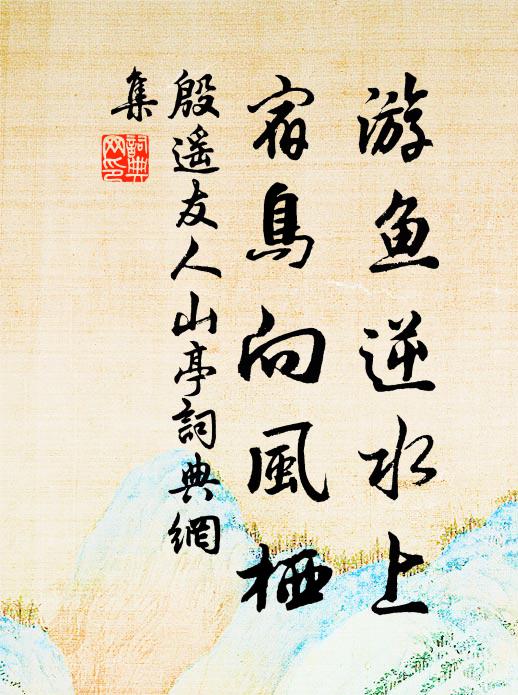 游鱼逆水上
宿鳥向風栖
殷遥友人山亭詞典網
集
詞典
网印